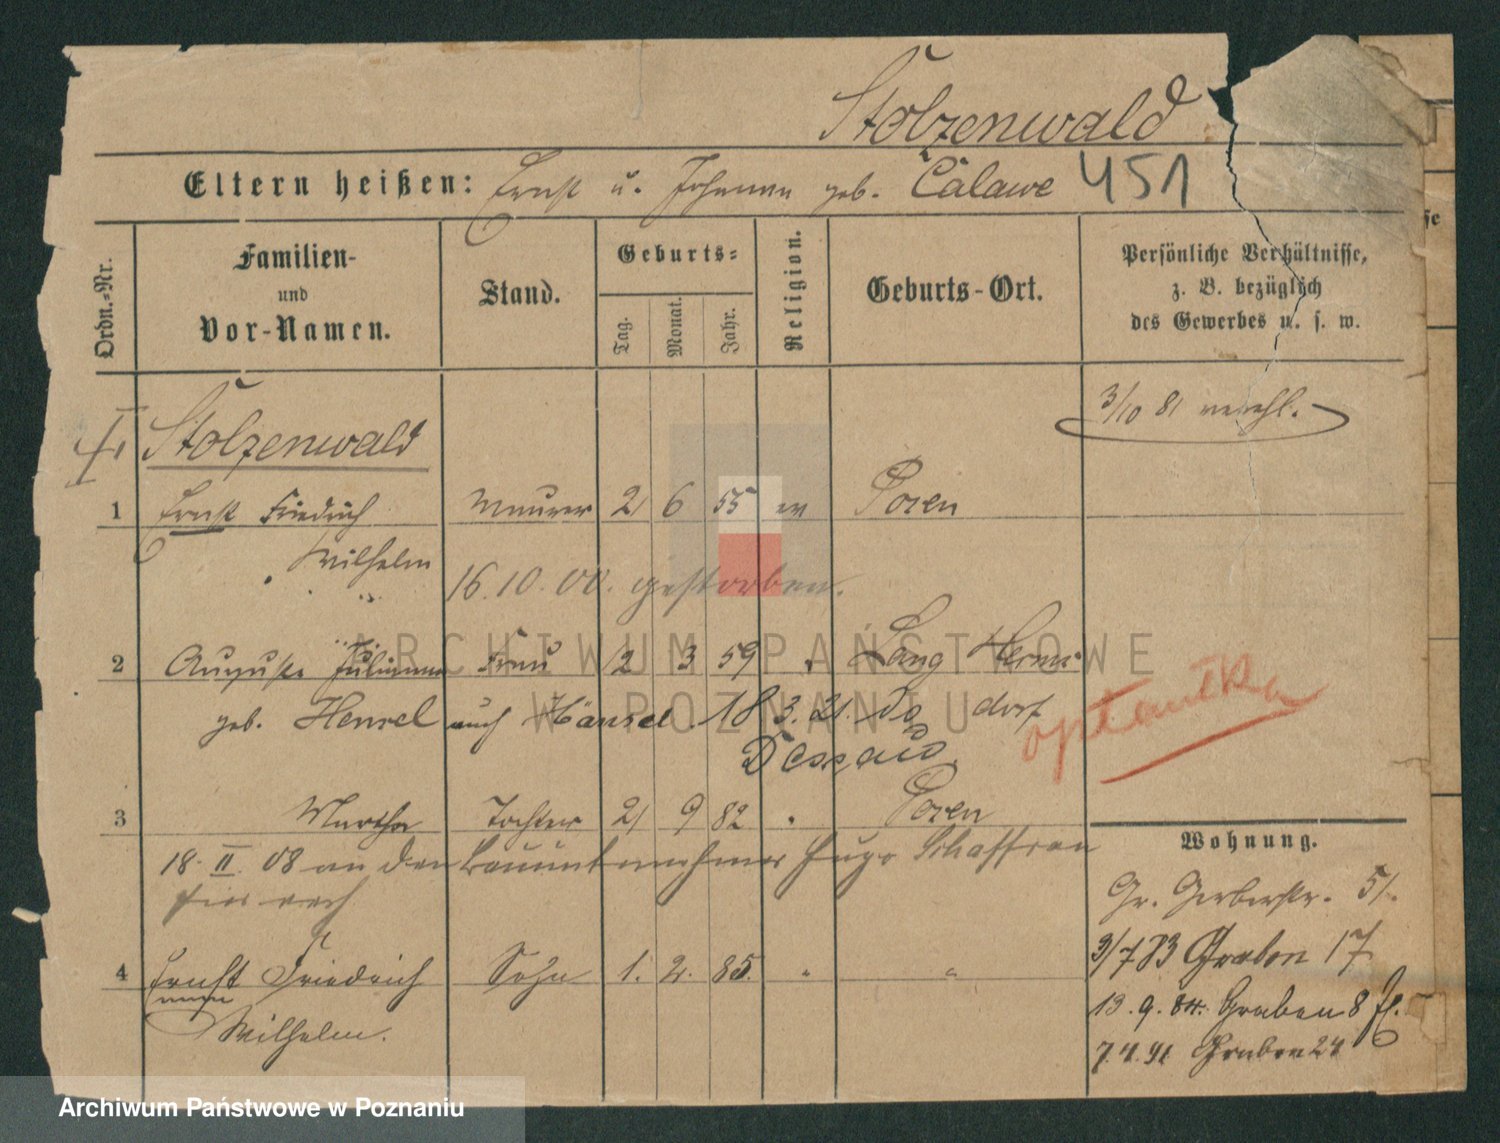 Stolzenwald
Eltern heißen: Ernst u. Johanna geb. Calawe 451
Ordn.-Nr.
Familien-
und
Vor-Namen.
Stand.
Geburts-
Tag. Monat. Jahr.
Religion.
Geburts-Ort.
Persönliche Verhältnisse,
z. B. bezüglich
des Gewerbes u. s. w.
3/10 81 verehl.
Stolzenwald
1 Ernst Friedrich Maurer 21 6 55 ev Posen
Wilhelm
16.10.00. gestorben.
2 Auguste Julianna Frau 12 3 59 " Lang Herms
geb. Hensel auch Hänsel. 18 3. 21. dorf
Dessau
optantka
3 Martha Tochter 21 9 82 " Posen
18. II. 08 an den Hugo Schaffran
4 Ernst Friedrich Sohn 1. 2. 85. " "
Wilhelm.
Wohnung.
Gr. Gerberstr. 51.
3/7 83 Graben 17
13. 9. 84. Graben 8
7.4.91 Graben 24
ARCHIWUM PAŃSTWOWE
W POZNANIU
Archiwum Państwowe w Poznaniu